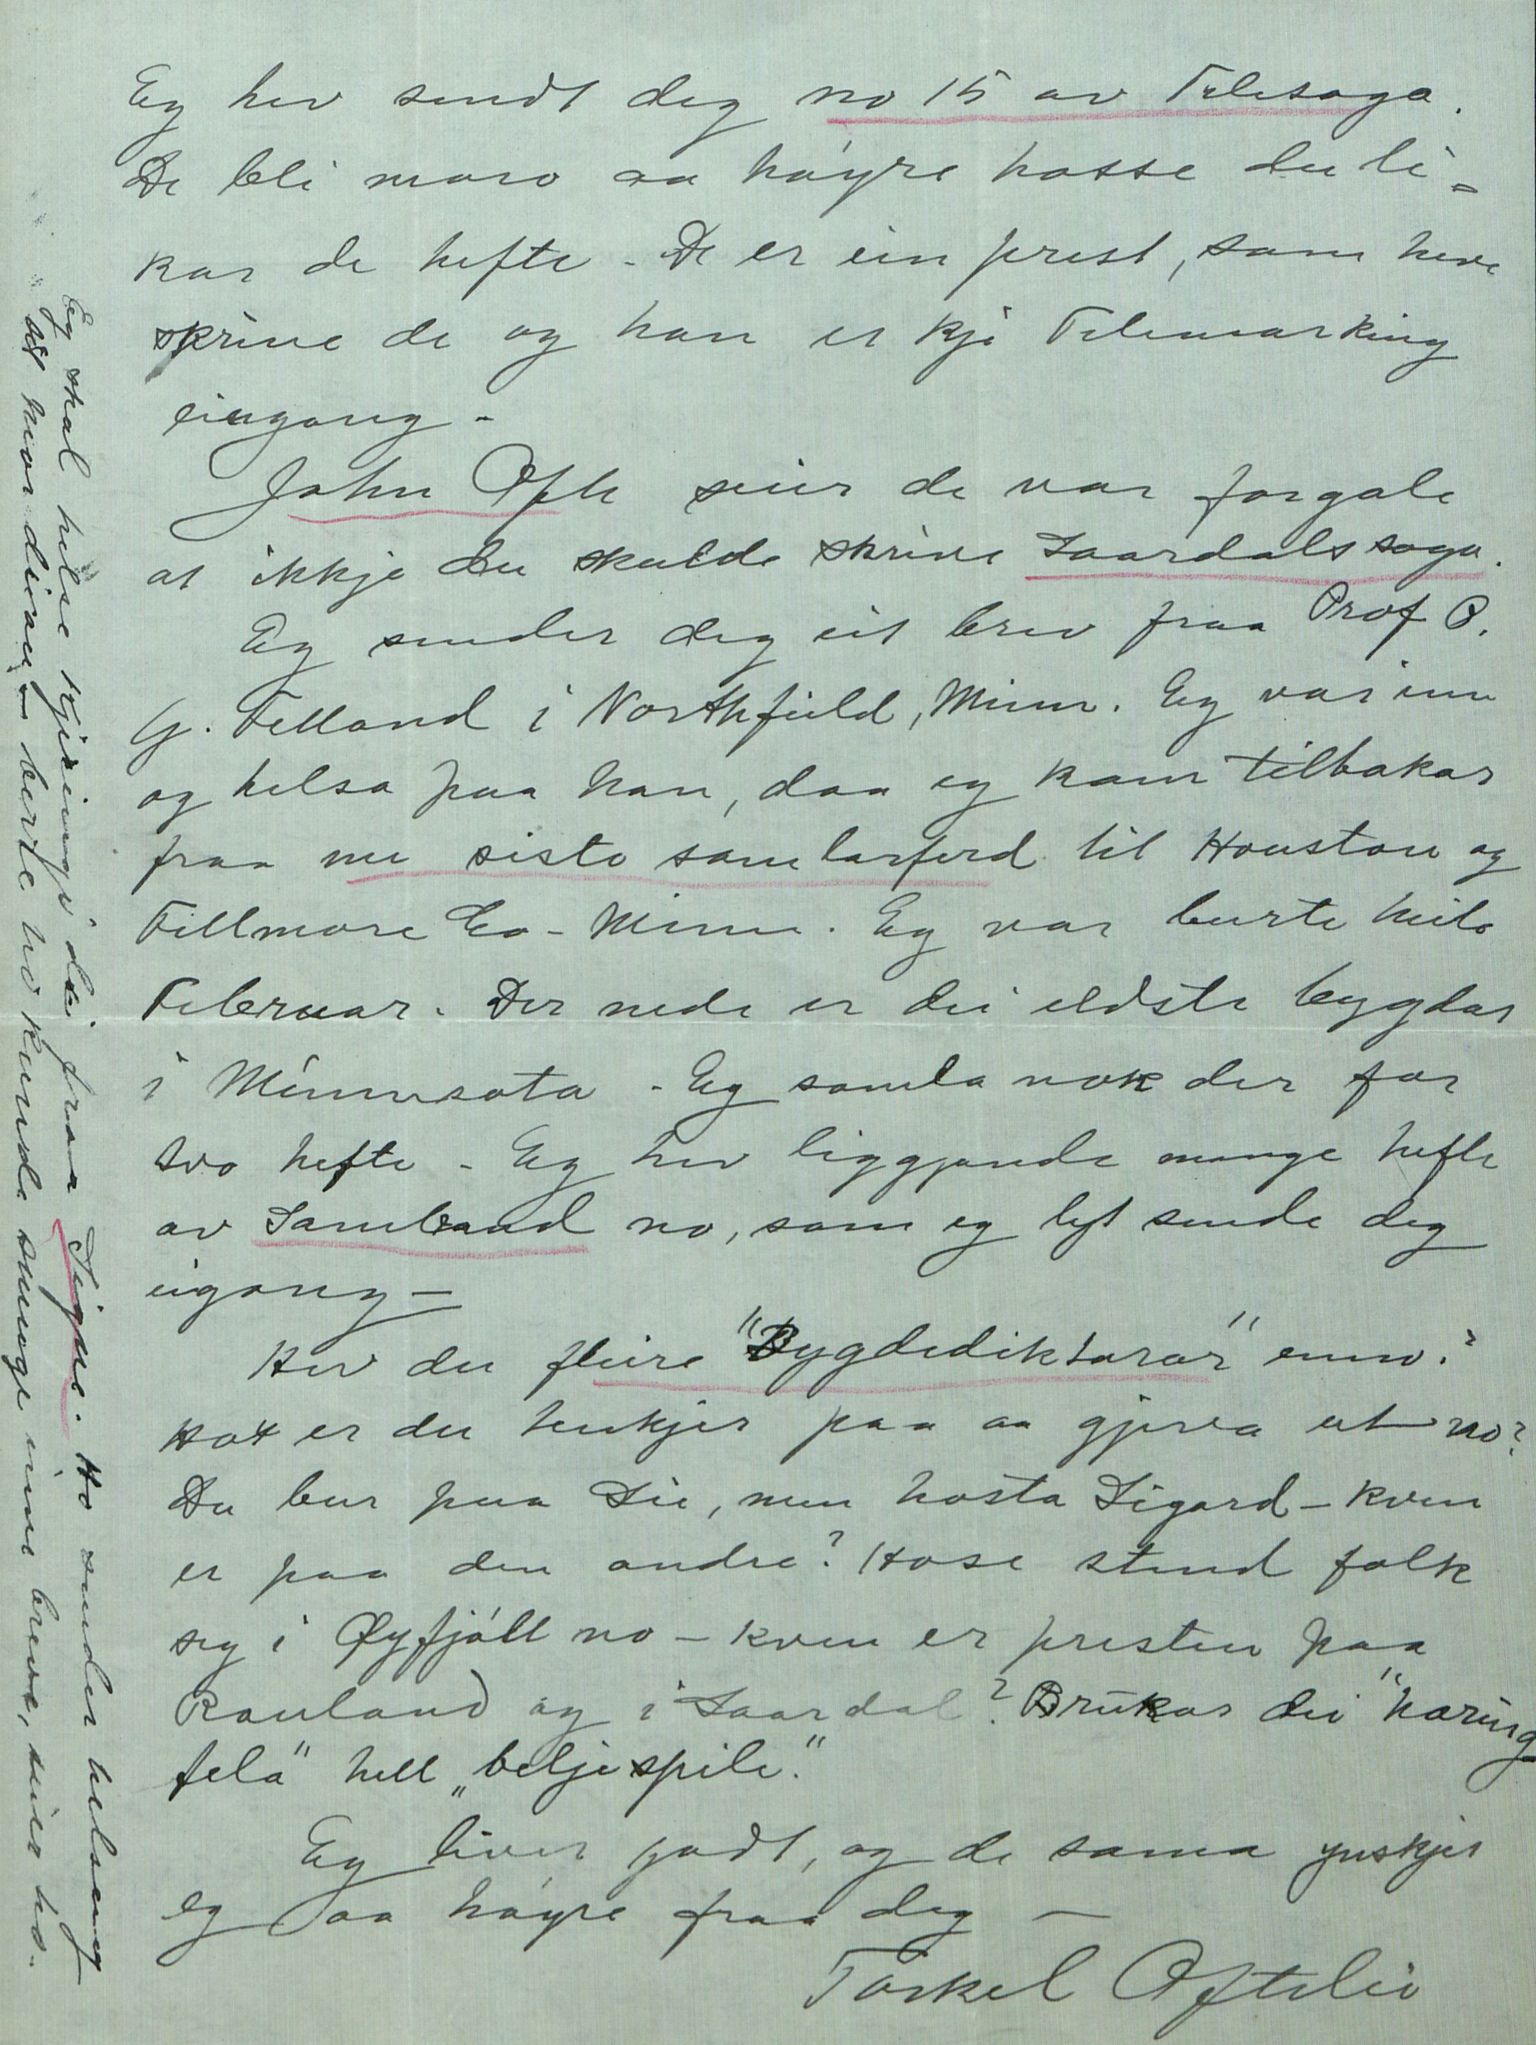 Eg hev sendt deg no 15 av Telesoga.
De bli moro aa höyre hosse du li=
kar de hefte - De er ein prest, som heve
skrive de og han er kje Telemarking
eingong -
John Ofte seier de var forgale
at ikkje du skulde skrive Laardalssoga.
Eg sender deg eit brev fraa Prof P.
G. Felland i Northfield, Minn. Eg var inn
og helsa paa han, daa eg kom tilbakar
fraa mi siste samlarferd til Houston og
Fillmore Co - Minn. Eg var burte heile
Februar. Der nede er dei eldste bygdar
i Minnesota - Eg samla nok der for
tvo hefte - Eg hev liggjande mange hefte
av Samband no, som eg lyt sende deg
eigong -
Hev du fleire "Bygdediktarar" enno?
Hot er du tenkjer paa aa gjeva ut no?
Du bur paa Lie, men hosta Sigard - kven
er paa den andre? Hose stend folk
seg i Øyfjóll no - kven er presten paa
Rauland og i Laardal? Brukar dei "haring
fela" hell "beljespile."
Eg liver godt, og de sama ynskjer
eg aa höyre fraa deg -
Torkel Oftelie
Eg skal helse kjeringi di fraa Signe. Ho sender helsing
at mor di au - berre ho kunde smoge inn brevet, seier ho.